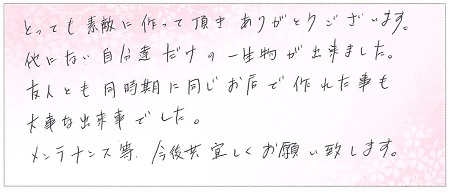 とっても素敵に作って頂きありがとうございます。
他にない自分達だけの一生物が出来ました。
友人とも同時期に同じお店で作れた事も
大事な出来事でした。
メンテナンス等、今後共宜しくお願い致します。